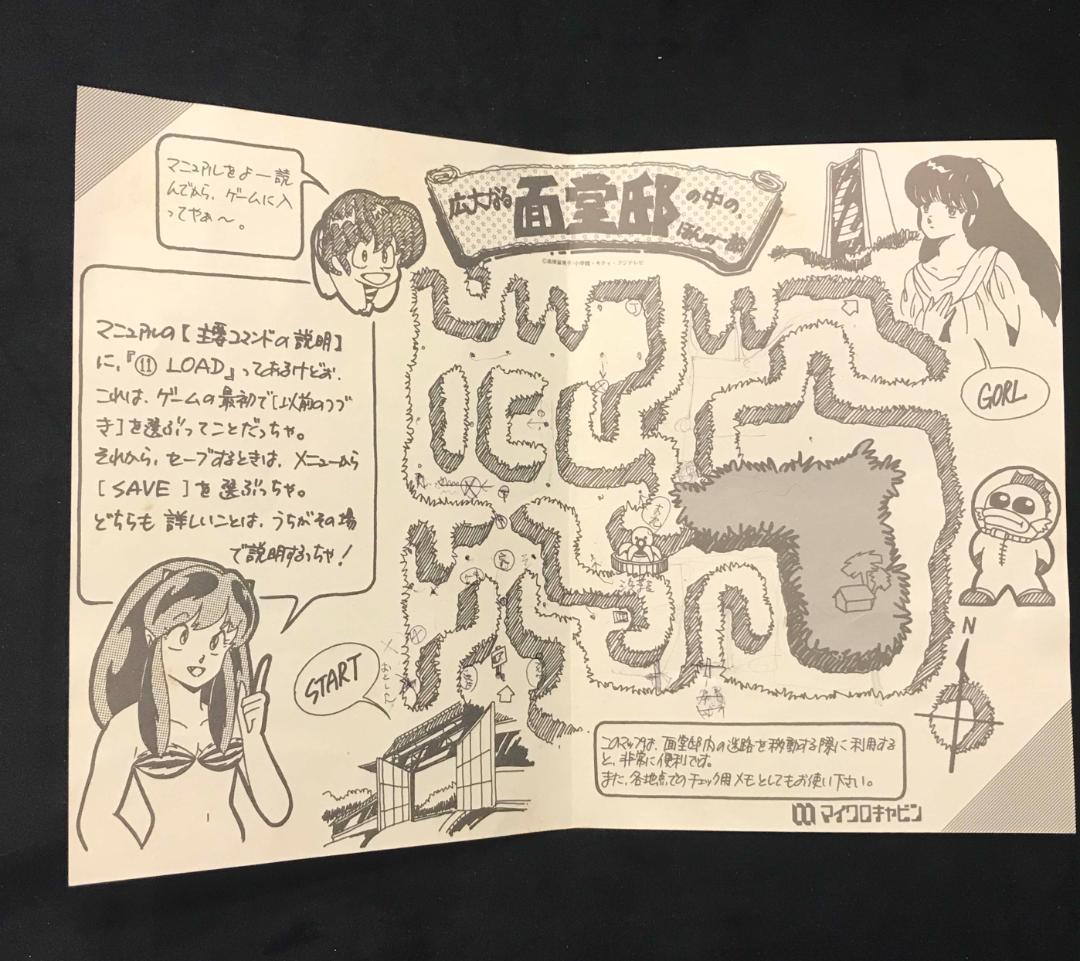 マニュアルをよーく読
んでから、ゲームに入
ってやぁ〜。
広大なる 面堂邸 の中の、
ほんの一部
©高橋留美子/小学館・キティ・フジテレビ
マニュアルの【主要コマンドの説明】
に、『⑪ LOAD』ってあるけどぉ、
これは、ゲームの最初で[以前のつづ
き]を選ぶってことだっちゃ。
それから、セーブするときは、メニューから
[SAVE]を選ぶっちゃ。
どちらも 詳しいことは、うちがその場
で説明するっちゃ!
GORL
START
N
このマップは、面堂邸内の迷路を移動する際に利用する
と、非常に便利です。
また、各地点でのチェック用メモとしてもお使い下さい。
マイクロキャビン